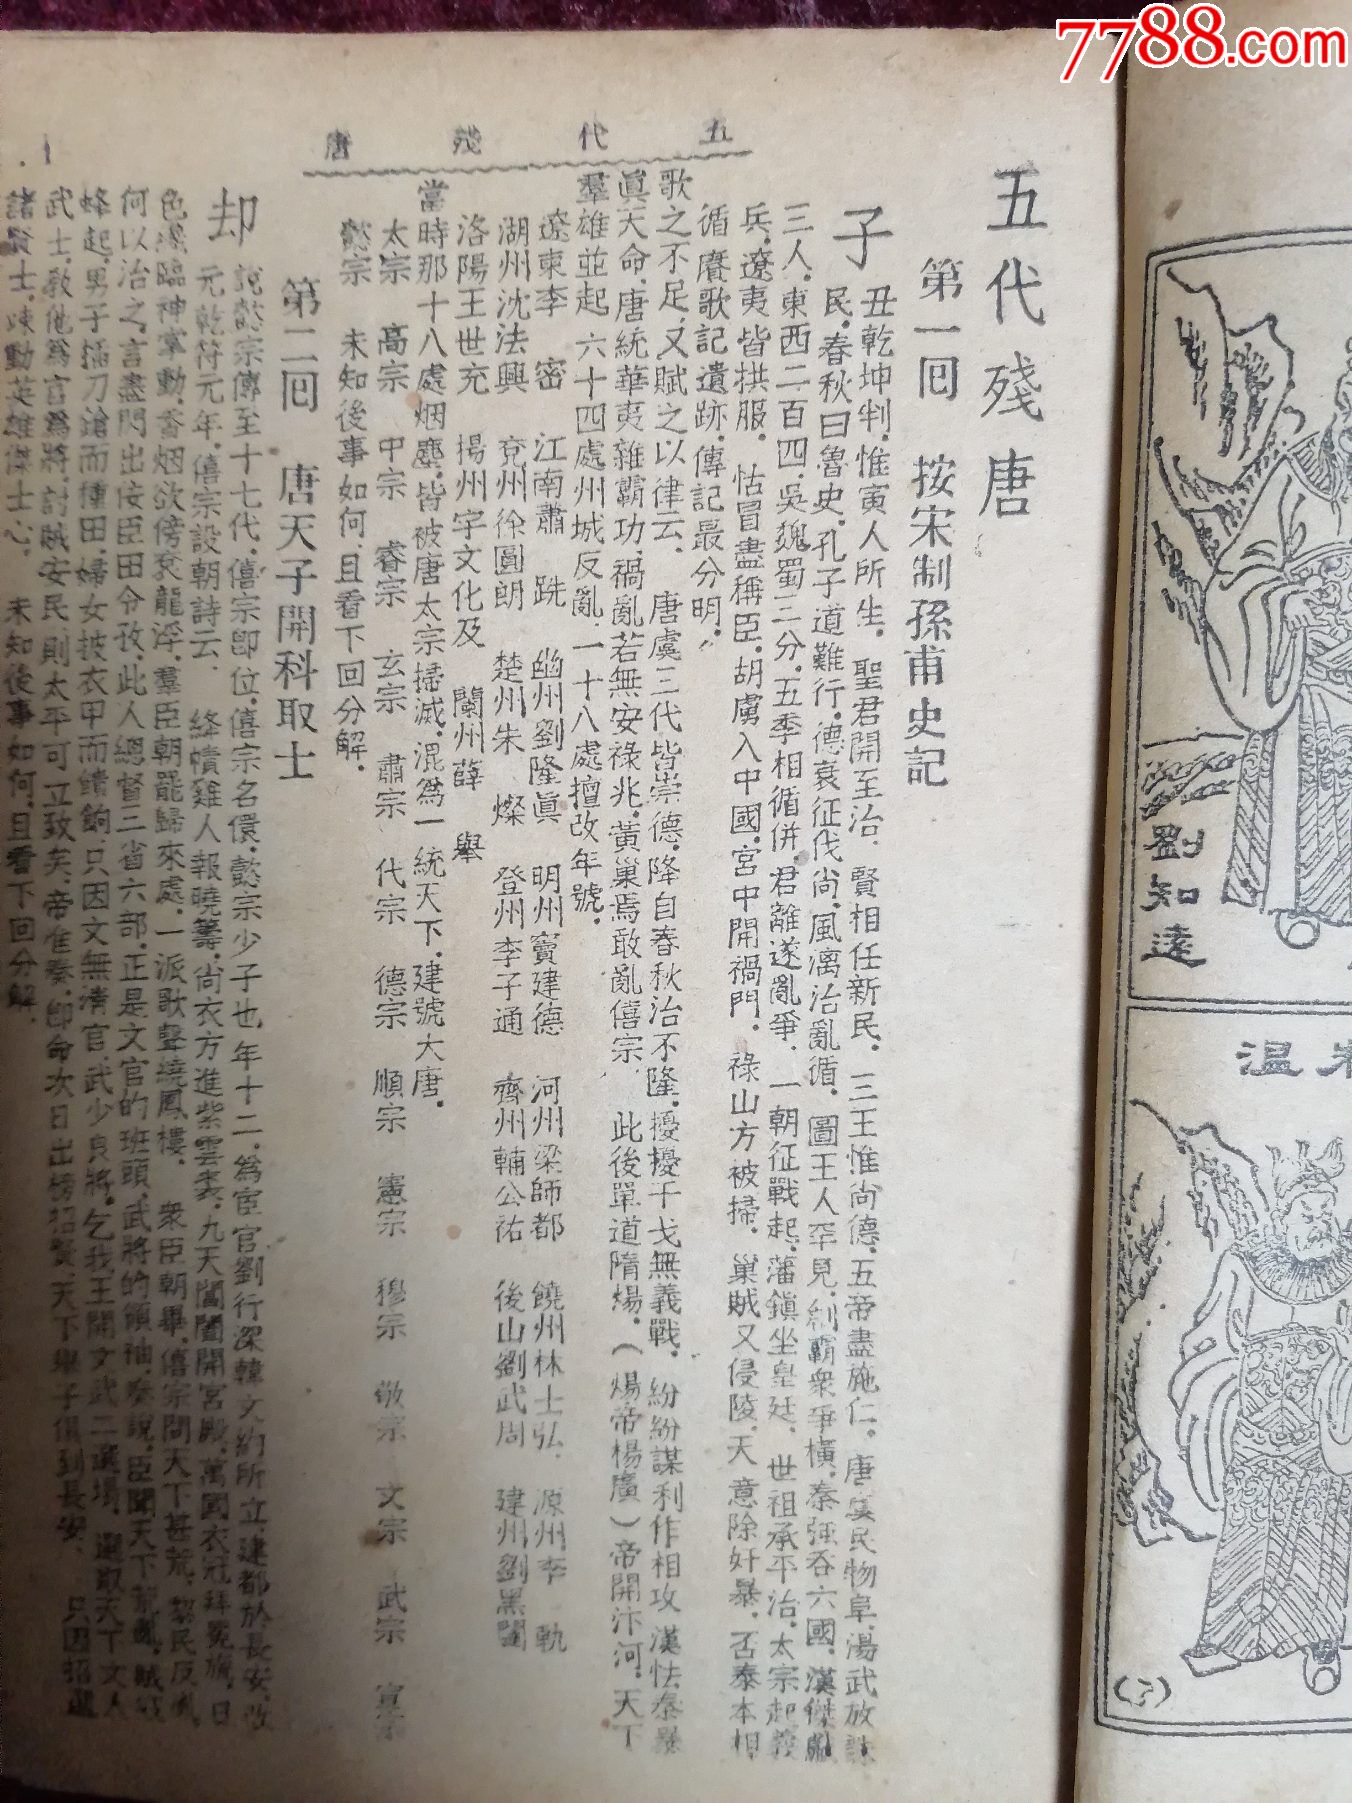 7788.com
五代殘唐
五代殘唐
第一回　按宋制孫甫史記
子丑乾坤判．惟寅人所生．聖君開至治．賢相任新民．三王惟尚德．五帝盡施仁．唐虞民物阜．湯武放誅
民．春秋曰魯史．孔子道難行．德衰征伐尚．風漓治亂循．圖王人罕見．糾霸衆爭橫．秦強吞六國．漢傑
三人．東西二百四．吳魏蜀三分．五季相循併．君離遂亂爭．一朝征戰起．藩鎮坐皇廷．世祖承平治．太宗起義
兵．遼夷皆拱服．怙冒盡稱臣．胡虜入中國．宮中開禍門．祿山方被掃．巢賊又侵陵．天意除奸暴．否泰本相
循．賡歌記遺跡．傳記最分明．
歌之不足．又賦之以律云．唐虞三代皆崇德．降自春秋治不隆．擾擾干戈無義戰．紛紛謀利作相攻．漢怯秦暴
眞天命．唐統華夷雜霸功．禍亂若無安祿兆．黃巢焉敢亂僖宗．此後單道隋煬．（煬帝楊廣）帝開汴河．天下
羣雄並起．六十四處州城反亂．一十八處擅改年號．
遼東李　密　江南蕭　銑　幽州劉隆眞　明州竇建德　河州梁師都　饒州林士弘．源州李　軌
湖州沈法興　兗州徐圓朗　楚州朱　燦　登州李子通　齊州輔公祐　後山劉武周　建州劉黑闥
洛陽王世充　揚州宇文化及　蘭州薛　舉
當時那十八處烟塵．皆被唐太宗掃滅．混為一統天下．建號大唐．
太宗　高宗　中宗　睿宗　玄宗　肅宗　代宗　德宗　順宗　憲宗　穆宗　敬宗　文宗　武宗　宣宗
懿宗　未知後事如何．且看下回分解．
第二回　唐天子開科取士
却說懿宗傳至十七代．僖宗卽位．僖宗名儇．懿宗少子也．年十二．為宦官劉行深韓文約所立．建都於長安．改
元乾符元年．僖宗設朝詩云．絳幘雞人報曉籌．尚衣方進紫雲裘．九天閶闔開宮殿．萬國衣冠拜冕旒．日
色纔臨神掌動．香烟欲傍袞龍浮．羣臣朝罷歸來處．一派歌聲繞鳳樓．衆臣朝畢．僖宗問天下甚荒．黎民反亂．
何以治之．言盡閃出佞臣田令孜．此人總督三省六部．正是文官的班頭．武將的領袖．奏說．臣聞天下荒亂．賊寇
蜂起．男子插刀鎗而種田．婦女披衣甲而饋餉．只因文無清官．武少良將．乞我王開文武二選場．選取天下文人
武士．敎他為官為將．討賊安民．則太平可立致矣．帝准奏．卽命次日出榜招賢．天下舉子俱到長安．只因招選
諸賢士．竦動英雄傑士心．未知後事如何．且看下回分解．
劉知遠
溫